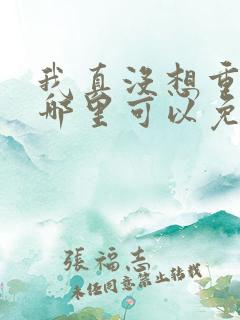 我真没想重
哪里可以免
張福志
未经同意禁止转载